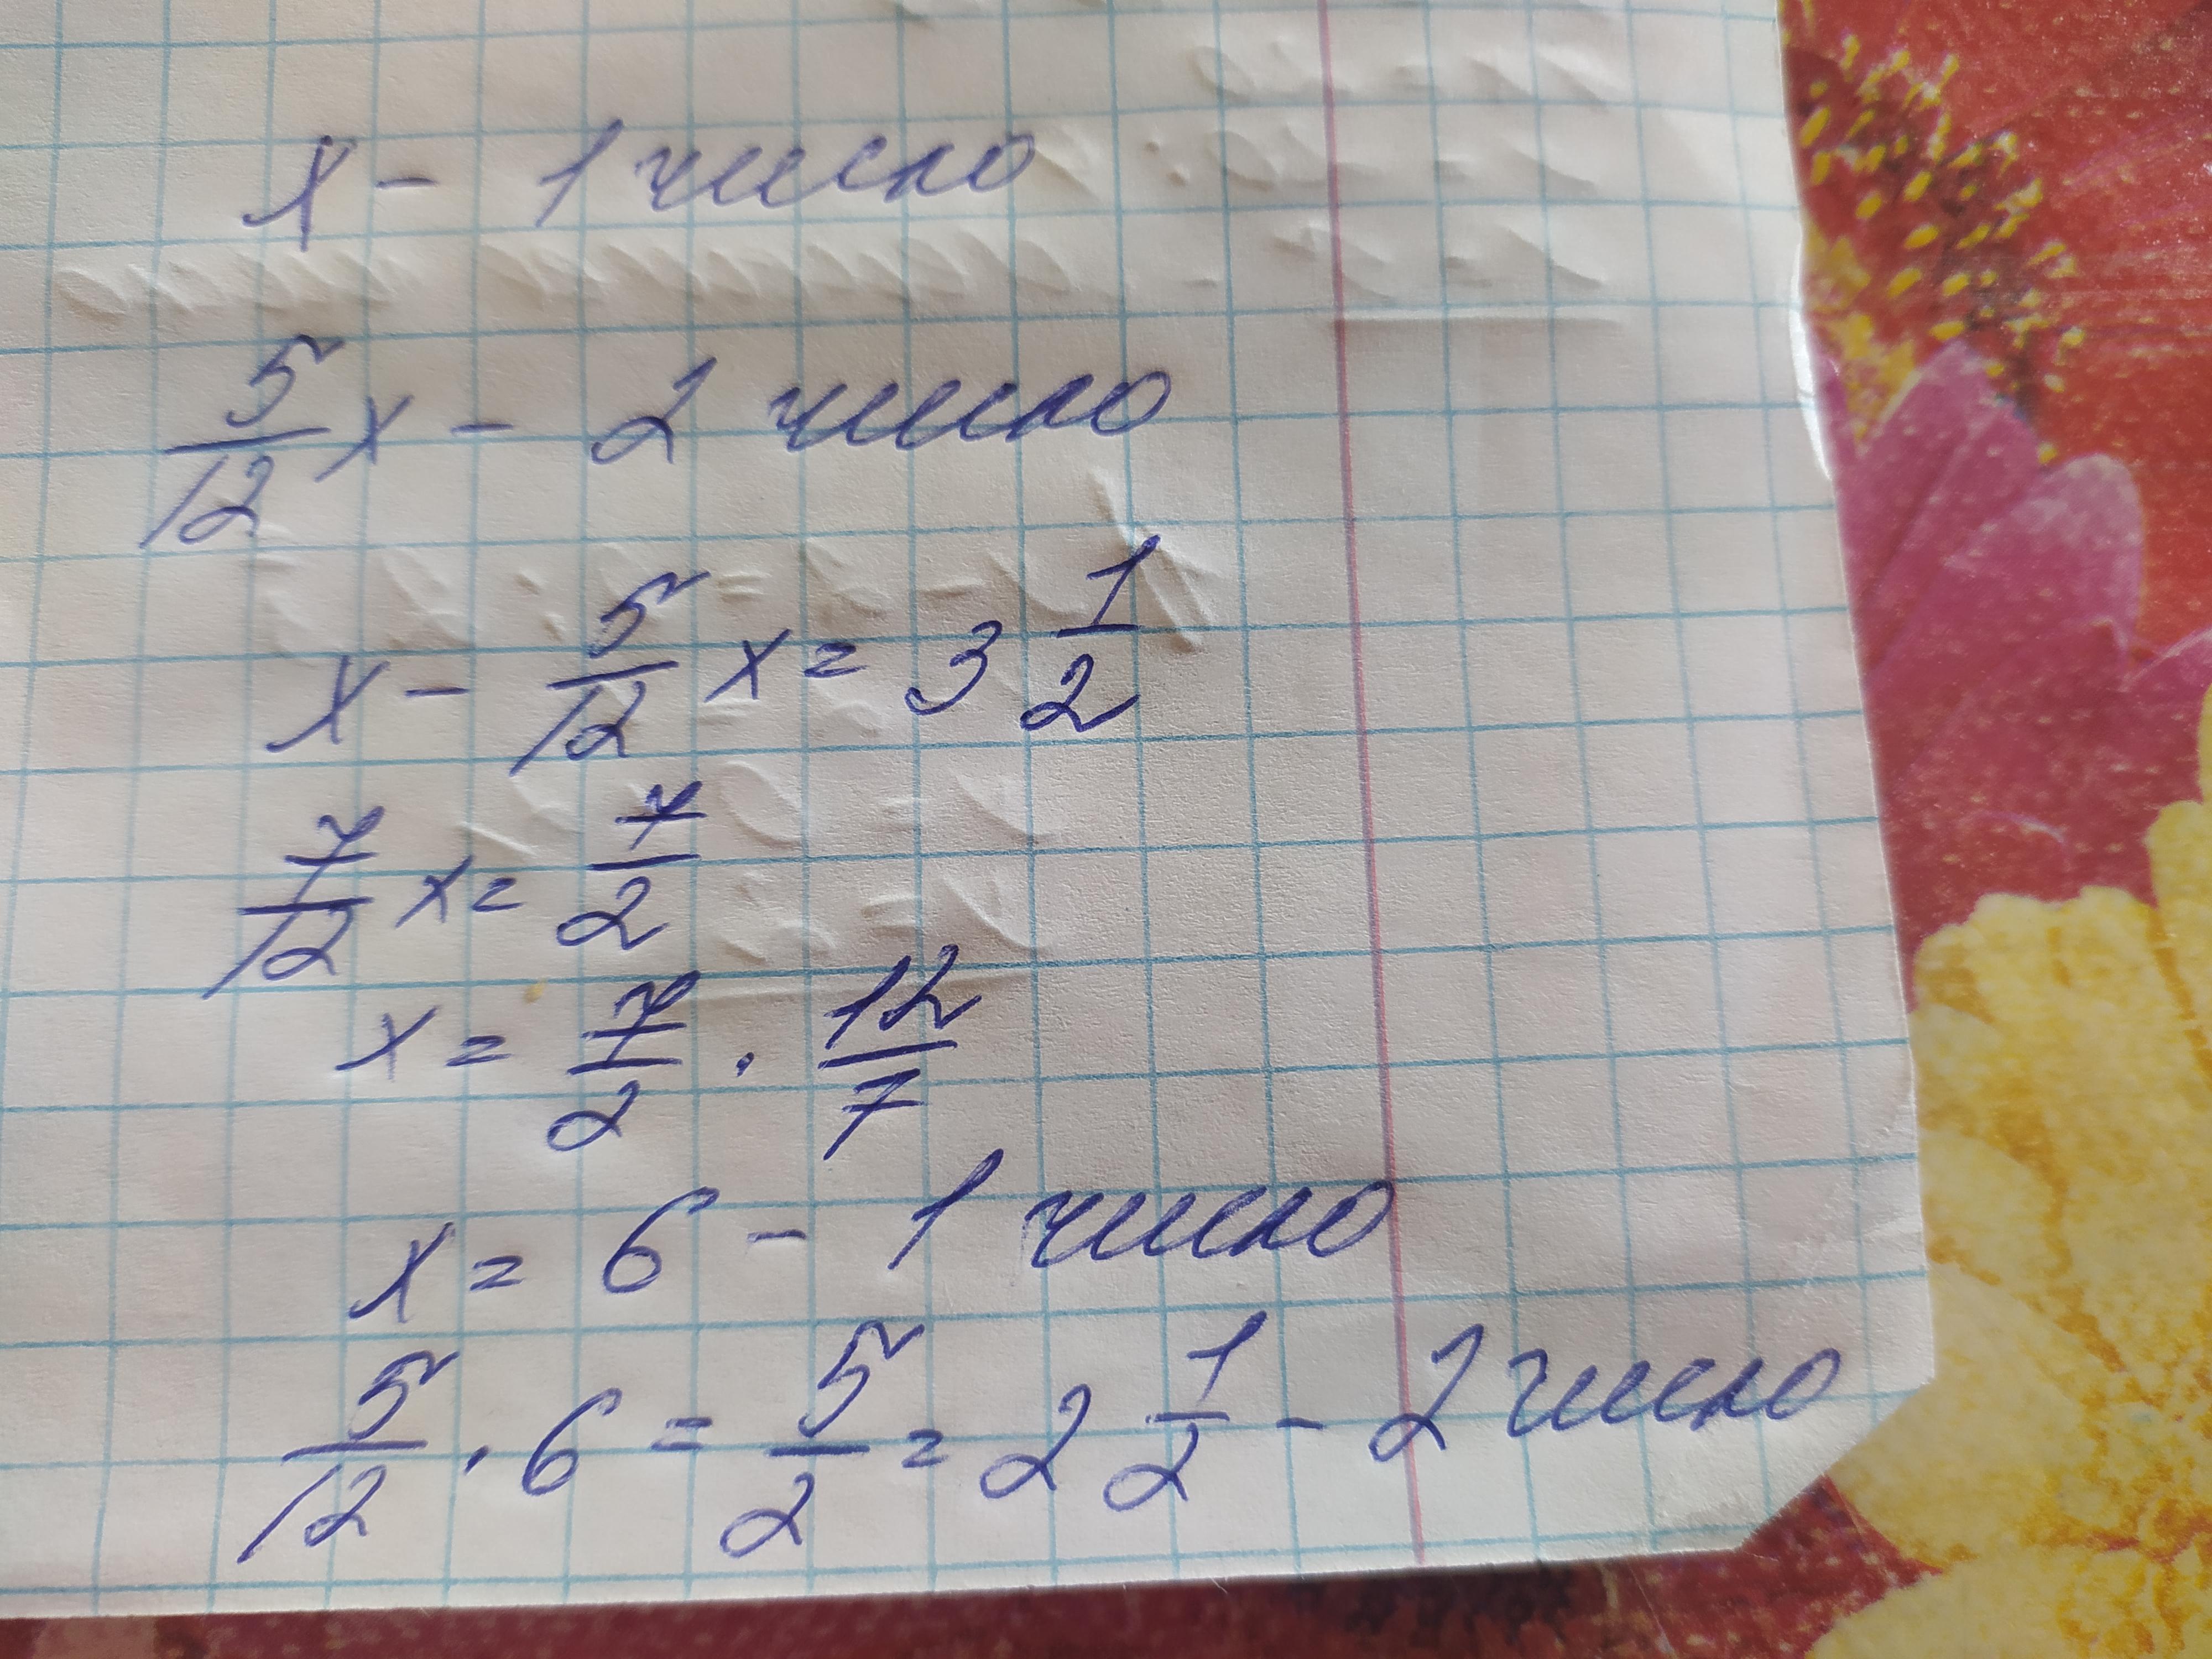 x - 1 число
5/12 x - 2 число
x - 5/12 x = 3 1/2
7/12 x = 7/2
x = 7/2 · 12/7
x = 6 - 1 число
5/12 · 6 = 5/2 = 2 1/2 - 2 число